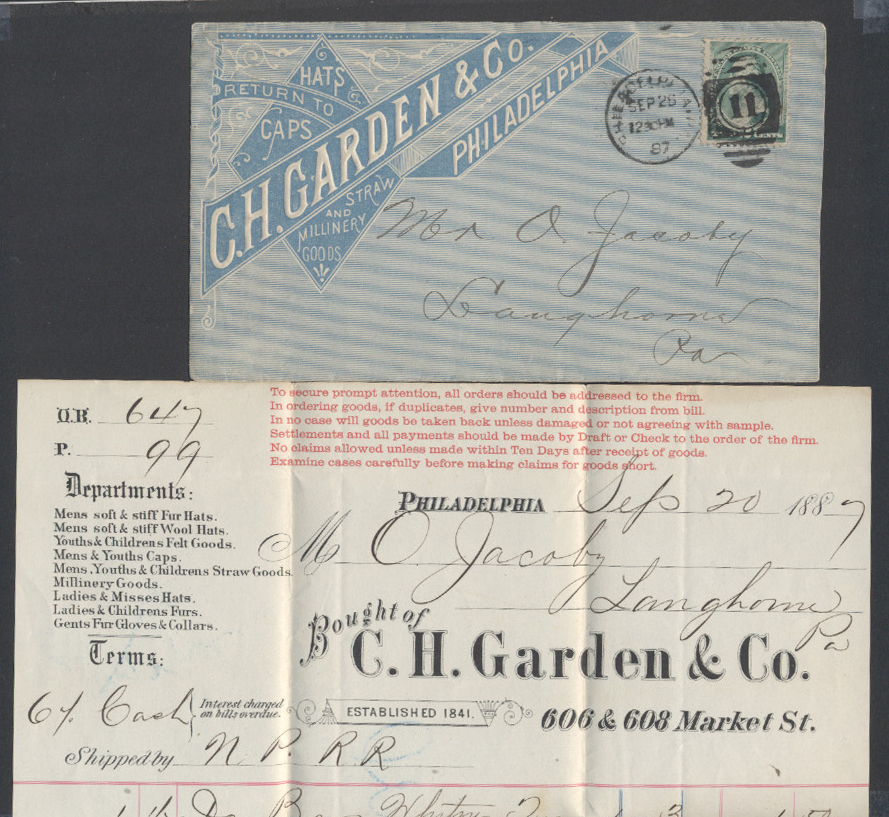 HATS
RETURN TO
CAPS
C.H. GARDEN & CO.
PHILADELPHIA
STRAW
AND
MILLINERY
GOODS
SEP 26
12 30 PM
87
11
Mr O. Jacoby
Langhorne
Pa
To secure prompt attention, all orders should be addressed to the firm.
In ordering goods, if duplicates, give number and description from bill.
In no case will goods be taken back unless damaged or not agreeing with sample.
Settlements and all payments should be made by Draft or Check to the order of the firm.
No claims allowed unless made within Ten Days after receipt of goods.
Examine cases carefully before making claims for goods short.
O.B. 647
P. 99
Departments:
Mens soft & stiff Fur Hats.
Mens soft & stiff Wool Hats.
Youths & Childrens Felt Goods.
Mens & Youths Caps.
Mens, Youths & Childrens Straw Goods.
Millinery Goods.
Ladies & Misses Hats.
Ladies & Childrens Furs.
Gents Fur Gloves & Collars.
Terms:
6% Cash
Interest charged
on bills overdue.
Shipped by N. P. R R
PHILADELPHIA Sep 20 1887
M O. Jacoby
Langhorne
Pa
Bought of
C. H. Garden & Co.
ESTABLISHED 1841.
606 & 608 Market St.